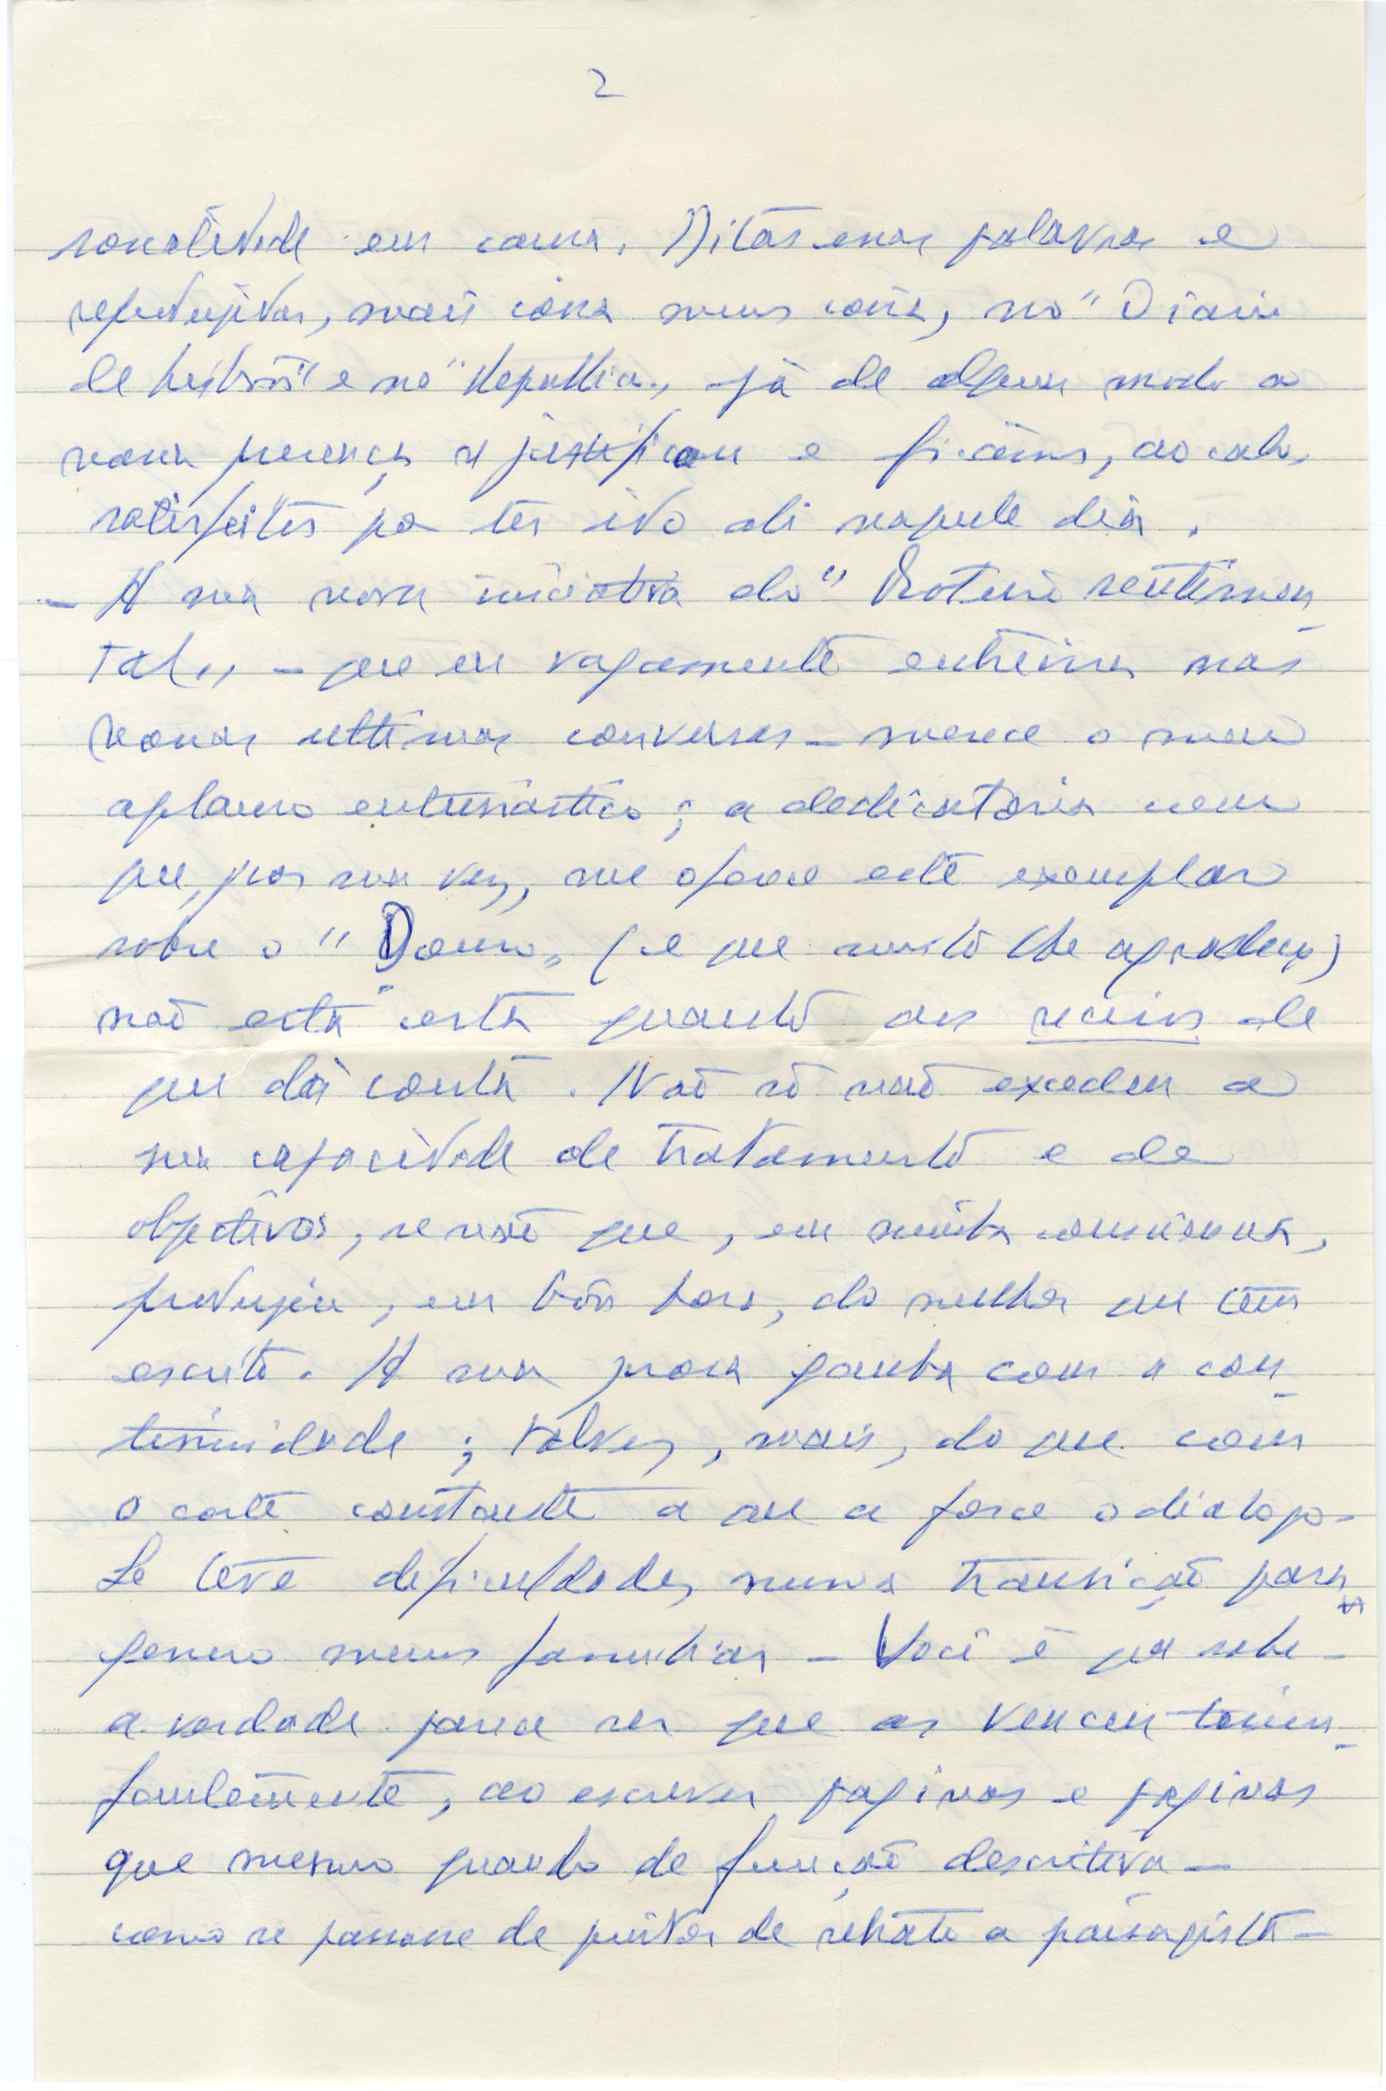 2
sonalidade em causa. Ditas essas palavras e
reproduzidas, mais coisa menos coisa, no "Diario
de Lisboa" e no "Republica", já de algum modo a
nossa presença se justificou e ficámos, ao cabo,
satisfeitos por ter ido ali naquele dia.
- A sua nova iniciativa do "Roteiro sentimen-
tal" - que eu vagamente entrevira nas
nossas ultimas conversas - merece o meu
aplauso entusiástico; a dedicatoria com
que, por sua vez, me oferece este exemplar
sobre o "Douro" (e que muito lhe agradeço)
não está certa quanto aos receios de
que dá conta. Não só não excedem a
sua capacidade de tratamento e de
objectivos, senão que, em minha consciencia,
produziu, em boa hora, do melhor que tem
escrito. A sua prosa ganha com a con-
tinuidade; talvez, mais, do que com
o corte constante a que a força o dialogo.
Se teve dificuldades, numa transição para
genero menos familiar - Você é que sabe -
a verdade parece ser que as venceu triun-
fantemente, ao escrever paginas e paginas
que mesmo quando de função descritiva -
como se passasse de pintor de retrato a paisagista -